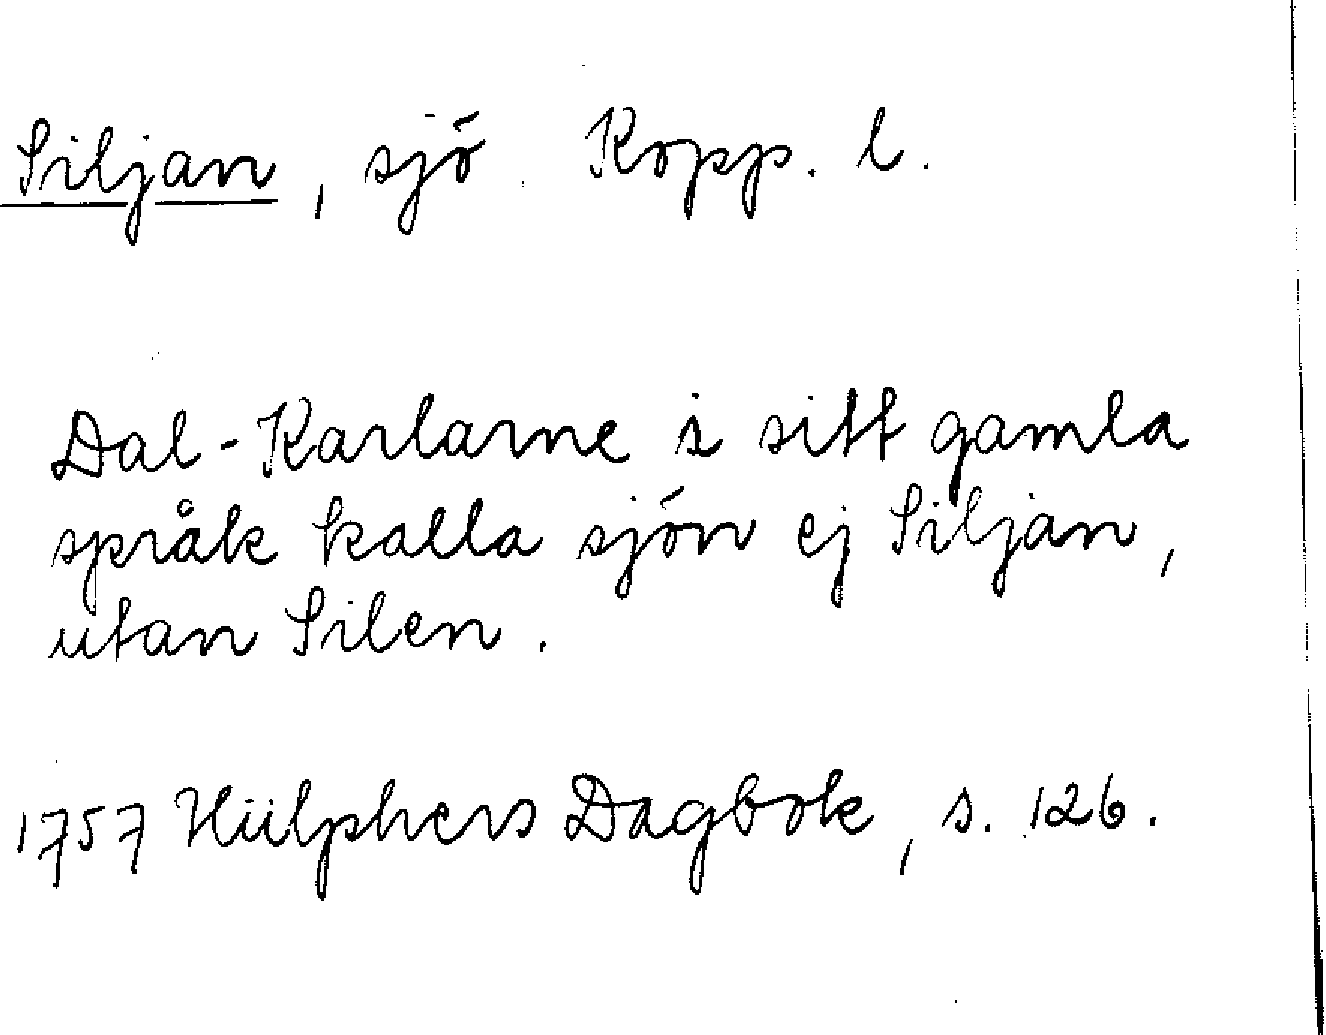 Siljan, sjö. Kopp. l.
Dal-Karlarne i sitt gamla
språk kalla sjön ej Siljan,
utan Silen.
1757 Hülphers Dagbok, s. 126.